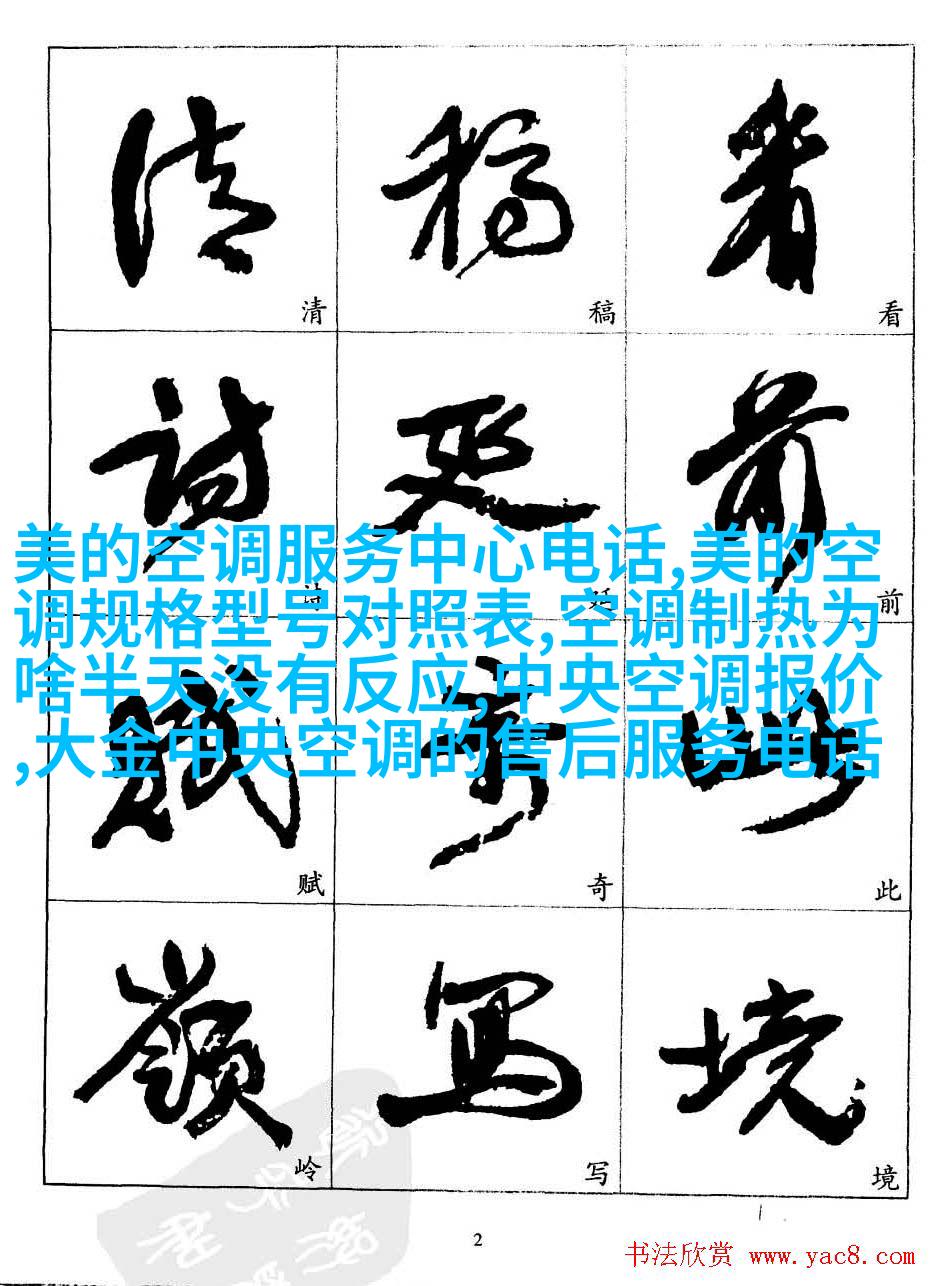 清 稿 看
清 稿 看
詩 前
前
美的空调服务中心电话,美的空
调规格型号对照表,空调制热为
啥半天没有反应,中央空调报价
,大金中央空调的售后服务电话
賦 奇 此
赋 奇 此
嶺 寫 境
岭 写 境
2
书法欣赏 www.yac8.com